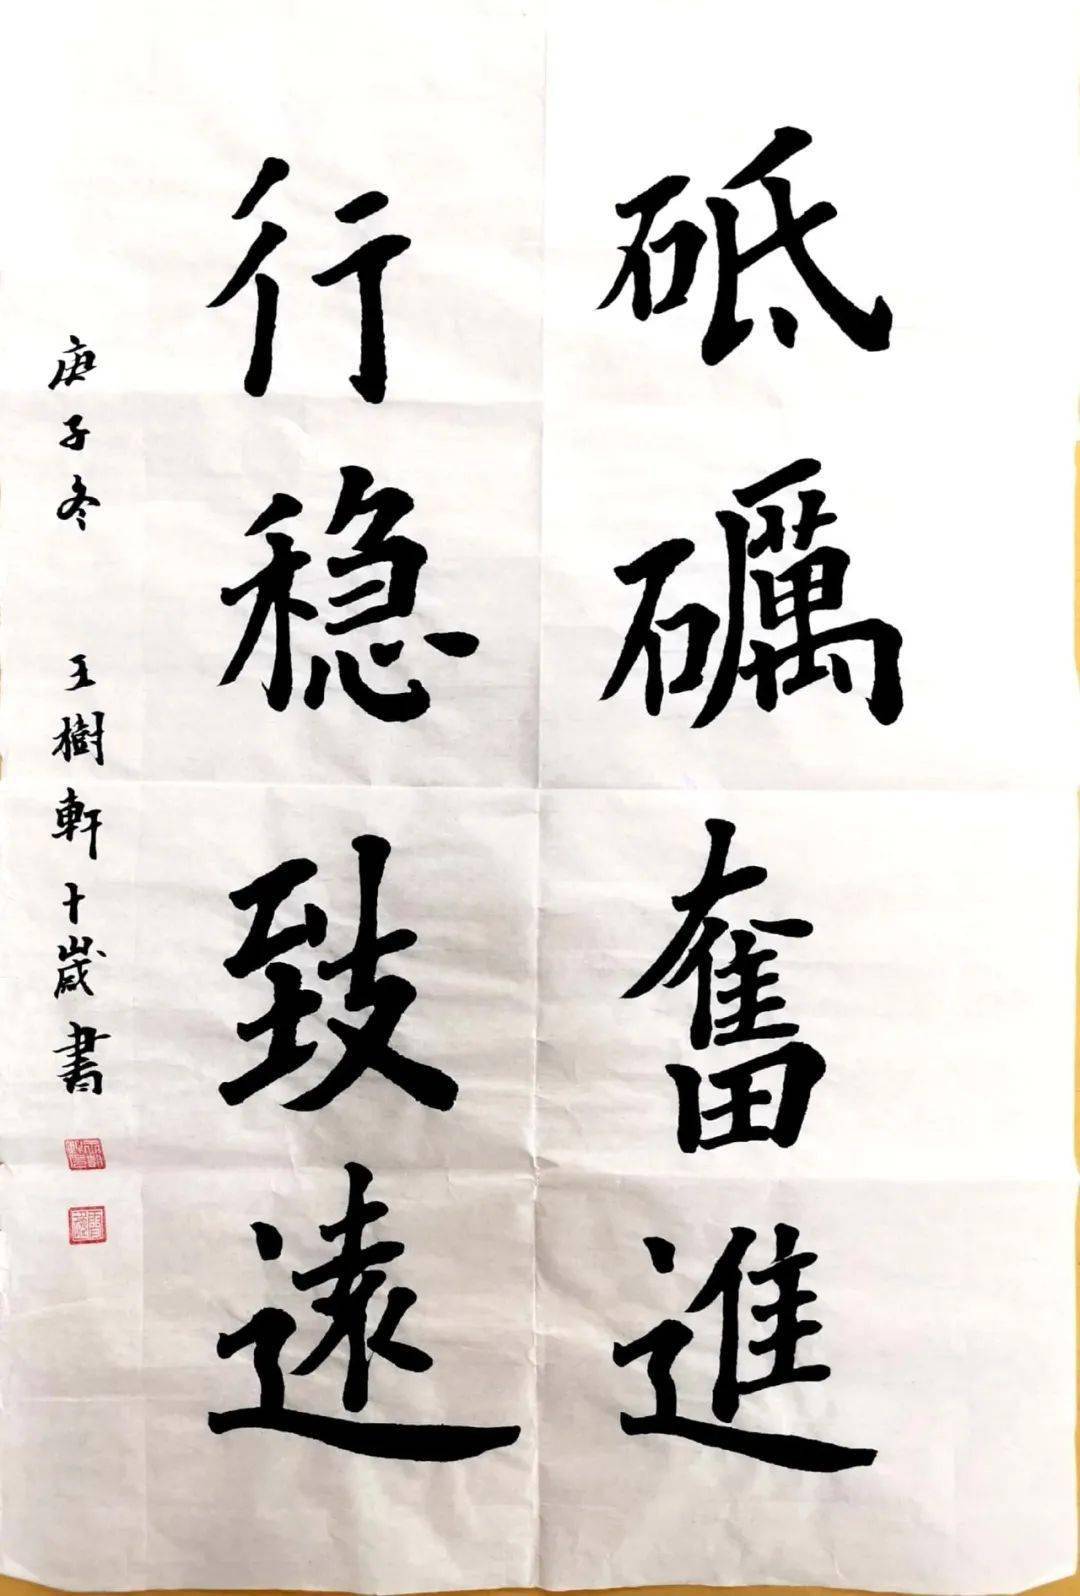 砥礪奮進
行稳致遠
庚子冬 王樹軒十歲書